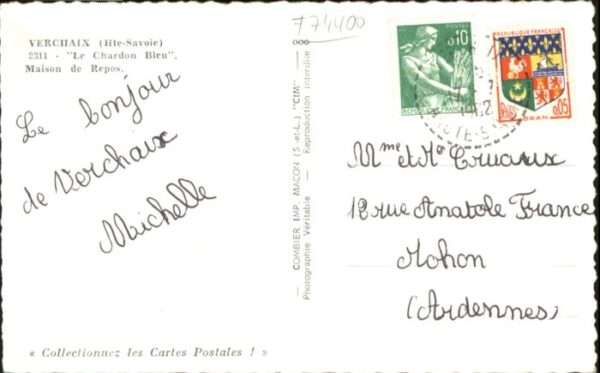 774400
VERCHAIX (Hte-Savoie)
2311 - "Le Chardon Bleu",
Maison de Repos.
Le bonjour
de Verchaix
Michelle
« Collectionnez les Cartes Postales ! »
— COMBIER IMP. MACON (S.-et-L.) "CIM" —
Photographie Véritable - Reproduction interdite
POSTES
0,10
REPUBLIQUE FRANÇAISE
REPUBLIQUE FRANÇAISE
0,05
ORAN
Mme et Mr Cruaux
12 rue Anatole France
Mohon
(Ardennes)